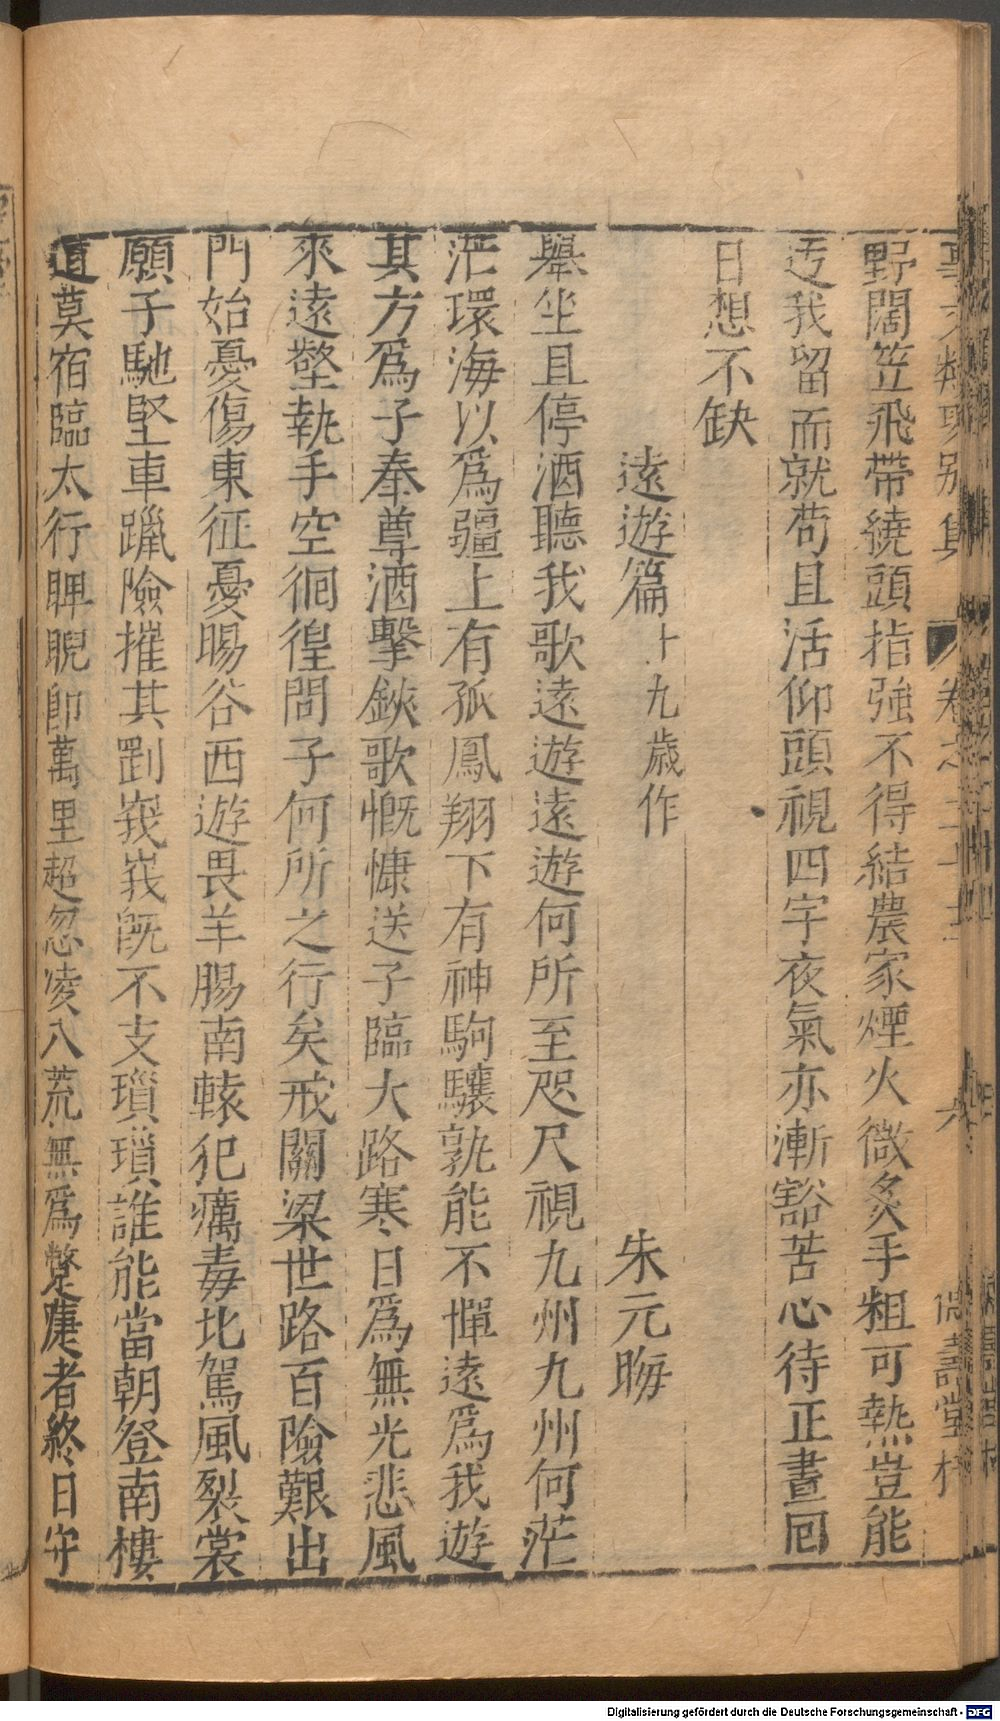 野闊笠飛帶繞頭指強不得結農家煙火微炙手粗可熱豈能
迂我留而就苟且活仰頭視四字夜氣亦漸豁苦心待正晝囘
日想不缺
遠遊篇十九歲作 朱元晦
舉坐且停酒聽我歌遠遊遠遊何所至咫尺視九州九州何茫
茫環海以爲疆上有孤鳳翔下有神駒驤孰能不憚遠爲我遊
其方爲子奉尊酒擊鋏歌慨慷送子臨大路寒日爲無光悲風
來遠壑執手空徊徨問子何所之行矣戒關梁世路百險艱出
門始憂傷東征憂暘谷西遊畏羊腸南轅犯癘毒北駕風裂裳
願子馳堅車躐險摧其剛峩峩既不支瑣瑣誰能當朝登南樓
道莫宿臨太行睥睨卽萬里超忽凌八荒無爲蹩躠者終日守